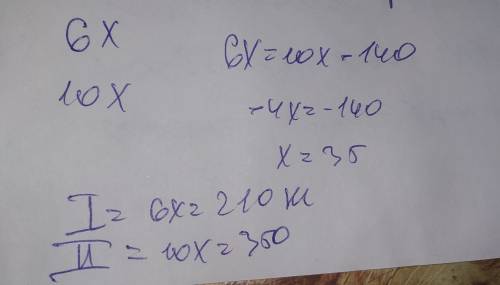 6x
10x
6x=10x-140
-4x=-140
x=35
I = 6x=210 км
II = 10x=350